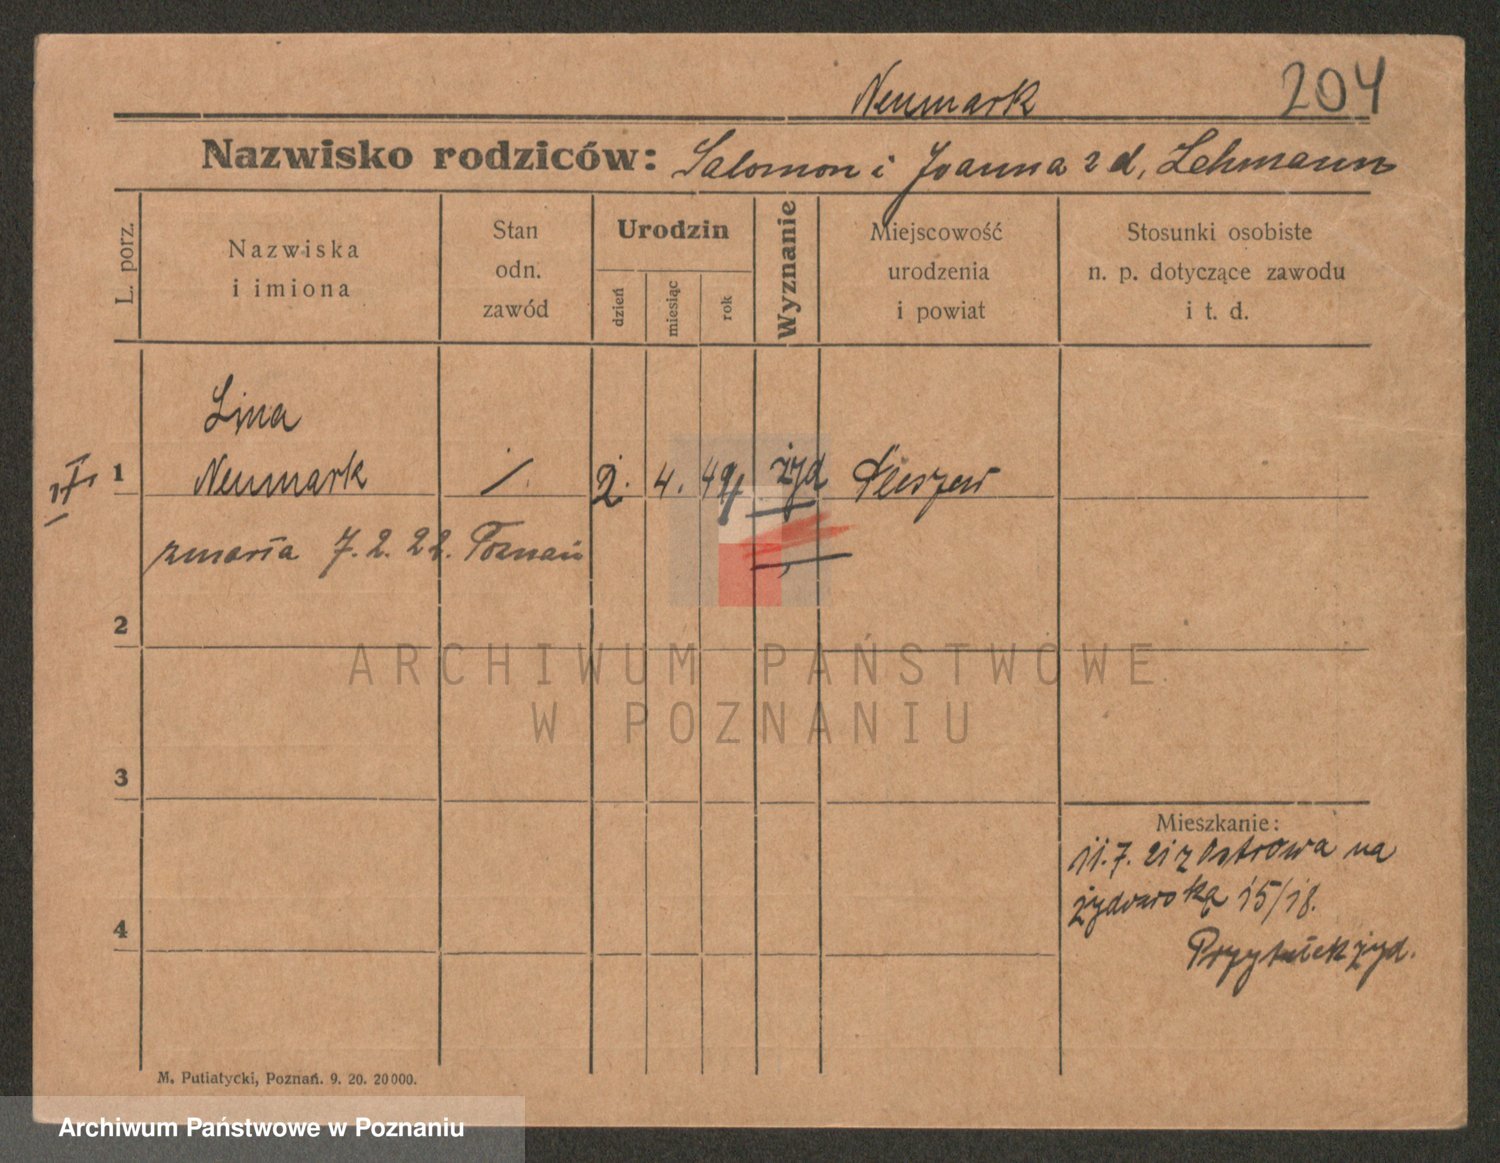 Neumark
204
Nazwisko rodziców: Salomon i Joanna z d. Lehmann
L. porz.
Nazwiska
i imiona
Stan
odn.
zawód
Urodzin
dzień
miesiąc
rok
Wyznanie
Miejscowość
urodzenia
i powiat
Stosunki osobiste
n. p. dotyczące zawodu
i t. d.
Lina
1 Neumark / 2. 4. 49 żyd Pleszew
zmarła 7. 2. 22. Poznań
2
ARCHIWUM PAŃSTWOWE
W POZNANIU
3
Mieszkanie:
11. 7. 21 z Ostrowa na
żydowską 15/18.
4
Przytułek żyd.
M. Putiatycki, Poznań. 9. 20. 20000.
Archiwum Państwowe w Poznaniu